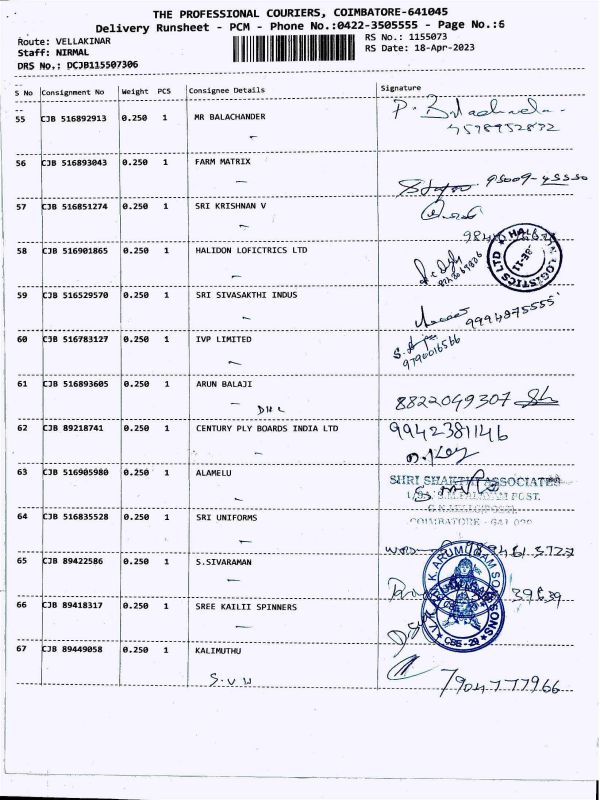 THE PROFESSIONAL COURIERS, COIMBATORE-641045
Delivery Runsheet - PCM - Phone No.:0422-3505555 - Page No.:6
Route: VELLAKINAR
RS No.: 1155073
Staff: NIRMAL
RS Date: 18-Apr-2023
DRS No.: DCJB115507306
S No Consignment No Weight PCS Consignee Details Signature
55 CJB 516892913 0.250 1 MR BALACHANDER
56 CJB 516893043 0.250 1 FARM MATRIX
57 CJB 516851274 0.250 1 SRI KRISHNAN V
58 CJB 516901865 0.250 1 HALIDON LOFICTRICS LTD
59 CJB 516529570 0.250 1 SRI SIVASAKTHI INDUS
9994875555
60 CJB 516783127 0.250 1 IVP LIMITED
9790016566
61 CJB 516893605 0.250 1 ARUN BALAJI
DHL 8822049307
62 CJB 89218741 0.250 1 CENTURY PLY BOARDS INDIA LTD 9942381146
63 CJB 516905980 0.250 1 ALAMELU
SHRI SHAKTHI ASSOCIATES
64 CJB 516835528 0.250 1 SRI UNIFORMS
COIMBATORE - 641 029
65 CJB 89422586 0.250 1 S.SIVARAMAN
66 CJB 89418317 0.250 1 SREE KAILII SPINNERS
67 CJB 89449058 0.250 1 KALIMUTHU
S.V.W 7904777966